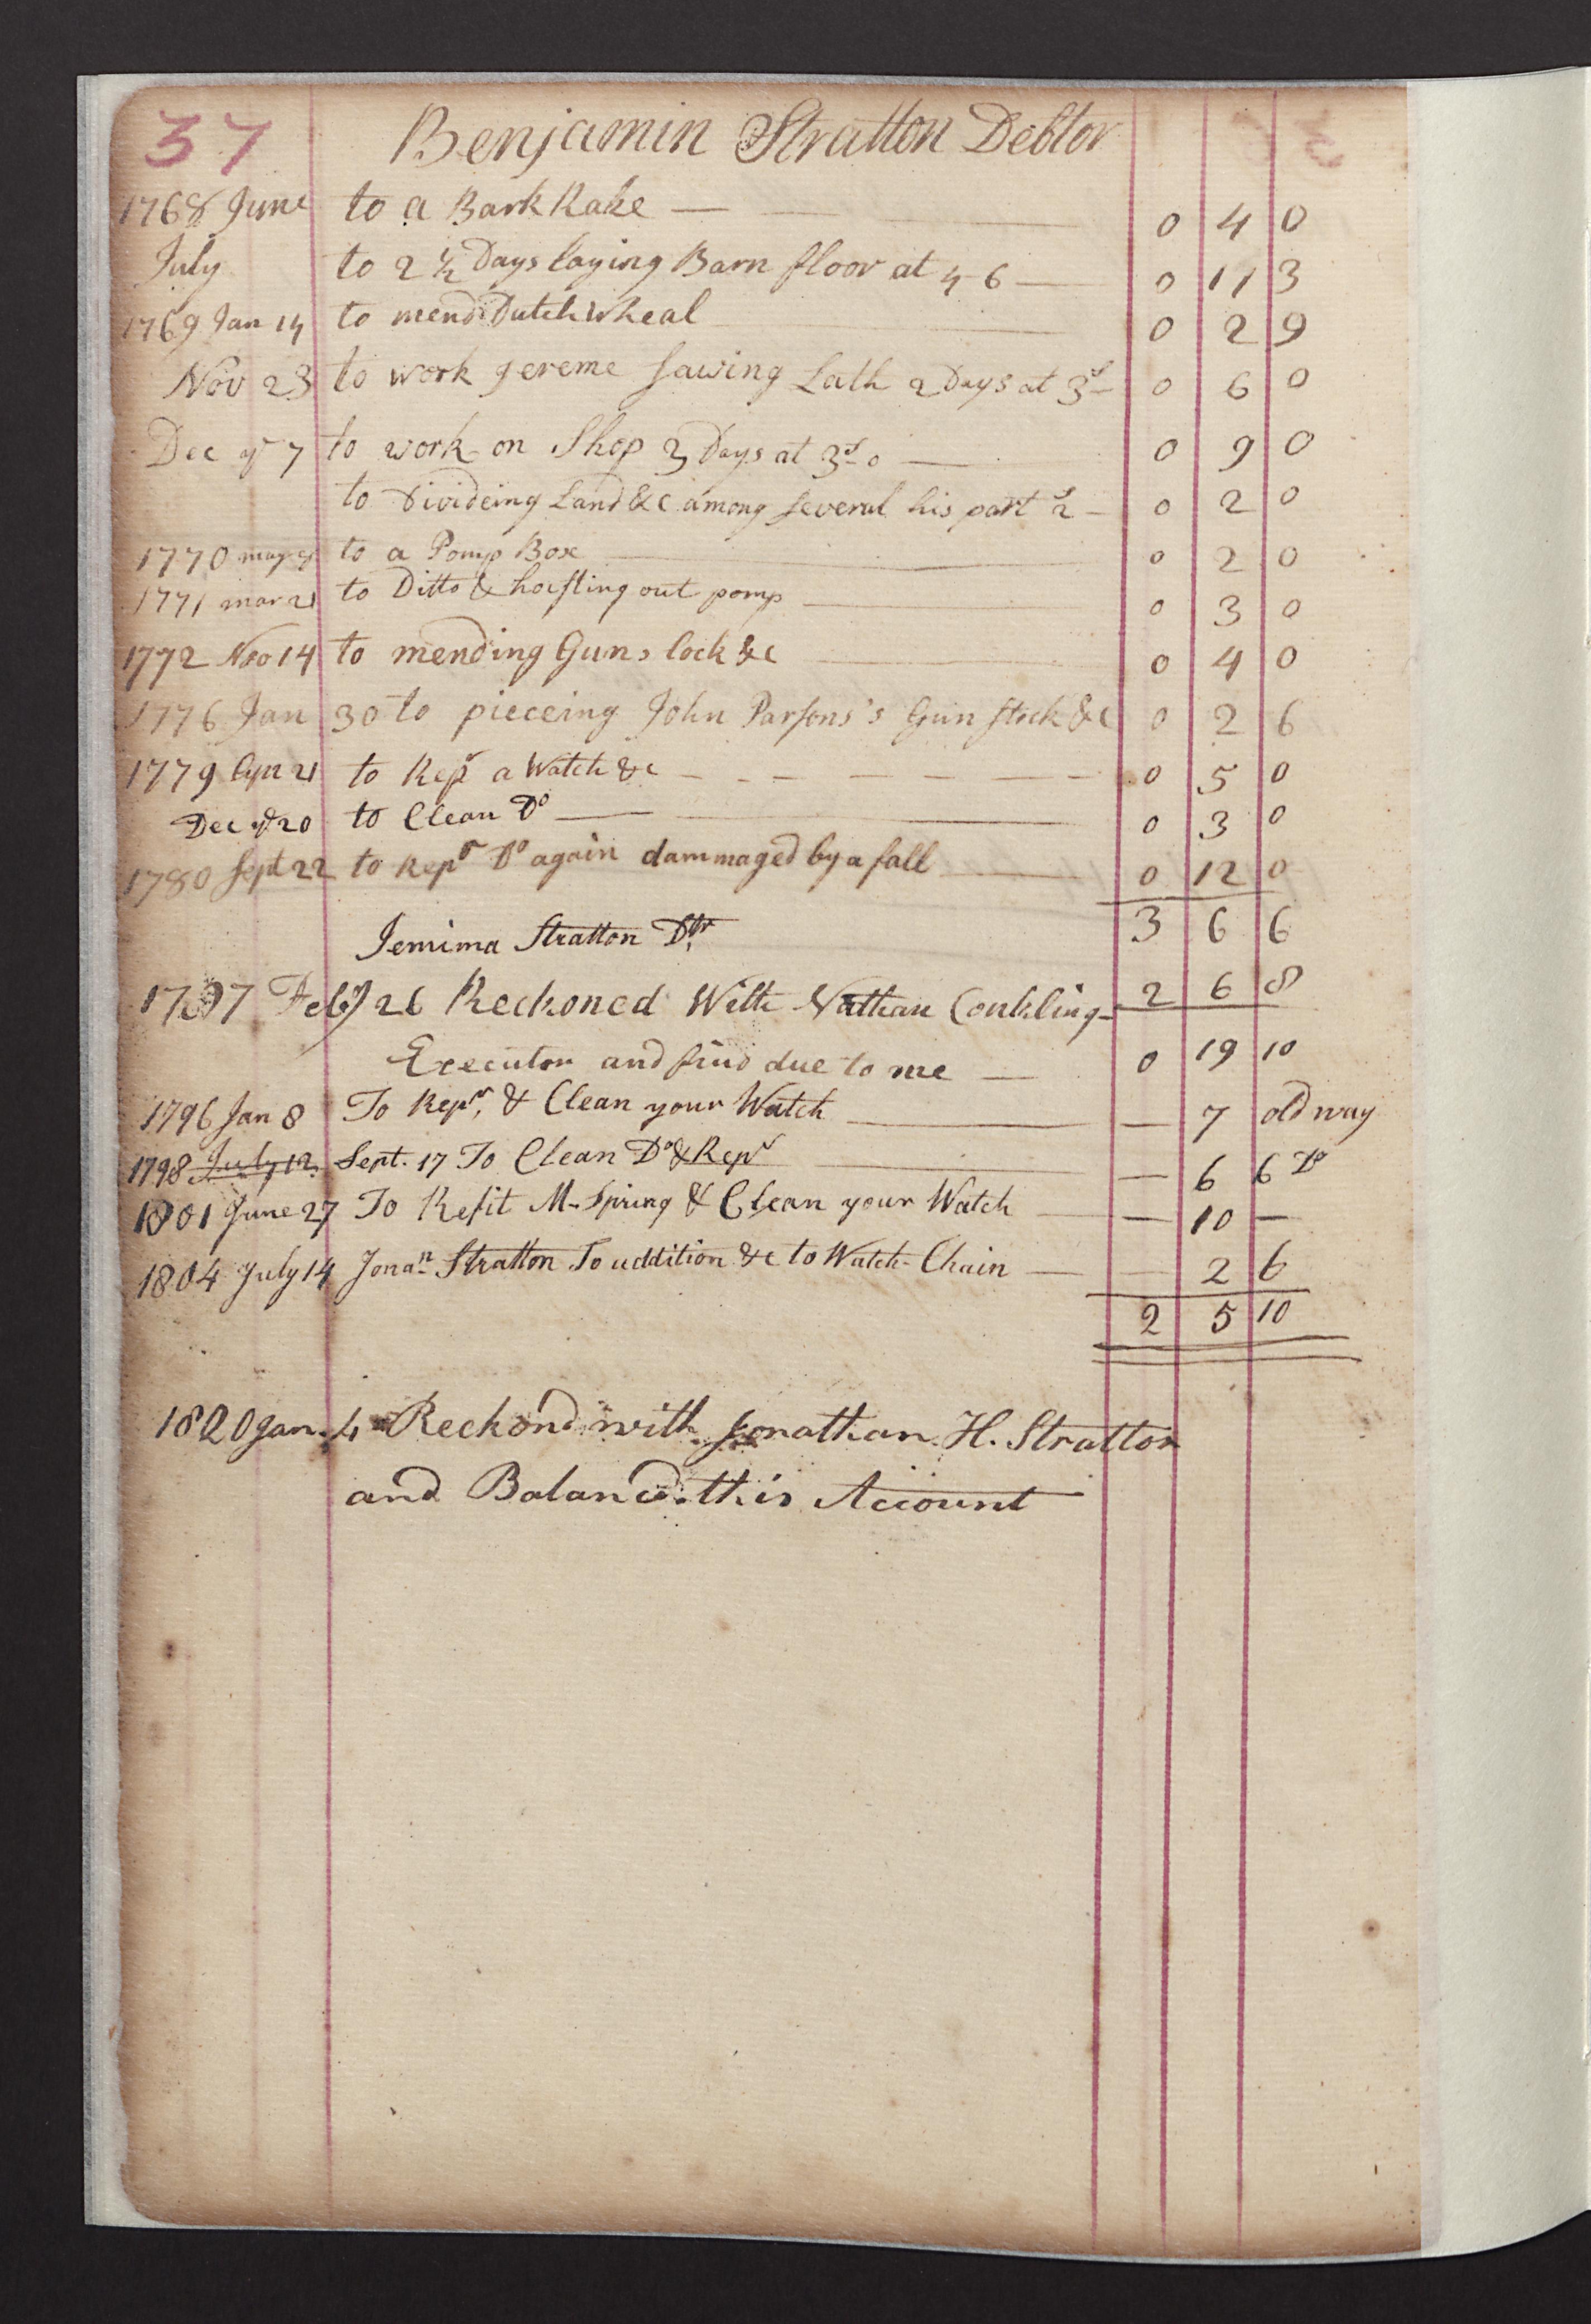 37 Benjamin Stratton Debtor
1768 June to a Bark Rake — 0 4 0
July to 2 ½ Days laying Barn floor at 4-6 — 0 11 3
1769 Jan 14 to mend Dutch Wheal 0 2 9
Nov 23 to work Jereme sawing Lath 2 Days at 3s – 0 6 0
Dec ye 7 to work on Shop 3 Days at 3s-0 — 0 9 0
to Divideing Land &c among several his part 2s – 0 2 0
1770 may to a Pomp Box 0 2 0
1771 mar 21 to Ditto & hoisting out pomp 0 3 0
1772 Nov 14 to mending Guns lock &c 0 4 0
1776 Jan 30 to pieceing John Parsons's Gun stock &c 0 2 6
1779 Apr 21 to Repr a Watch &c 0 5 0
Dec ye 20 to Clean Do — 0 3 0
1780 Sept 22 to Repr Do again dammaged by a fall 0 12 0
3 6 6
Jemima Stratton Dtr
1797 Feby 26 Reckoned With Nathan Conkling – 2 6 8
Executor and find due to me — 0 19 10
1796 Jan 8 To Repr, & Clean your Watch — 7 old way
1798 July 12. Sept. 17 To Clean Do & Repr — 6 6 Do
1801 June 27 To Refit M-Spring & Clean your Watch — 10 —
1804 July 14 Jonan Stratton To addition &c to Watch-Chain — 2 6
2 5 10
1820 Jan. 4 Reckond with Jonathan. H. Stratton
and Balancd this Account